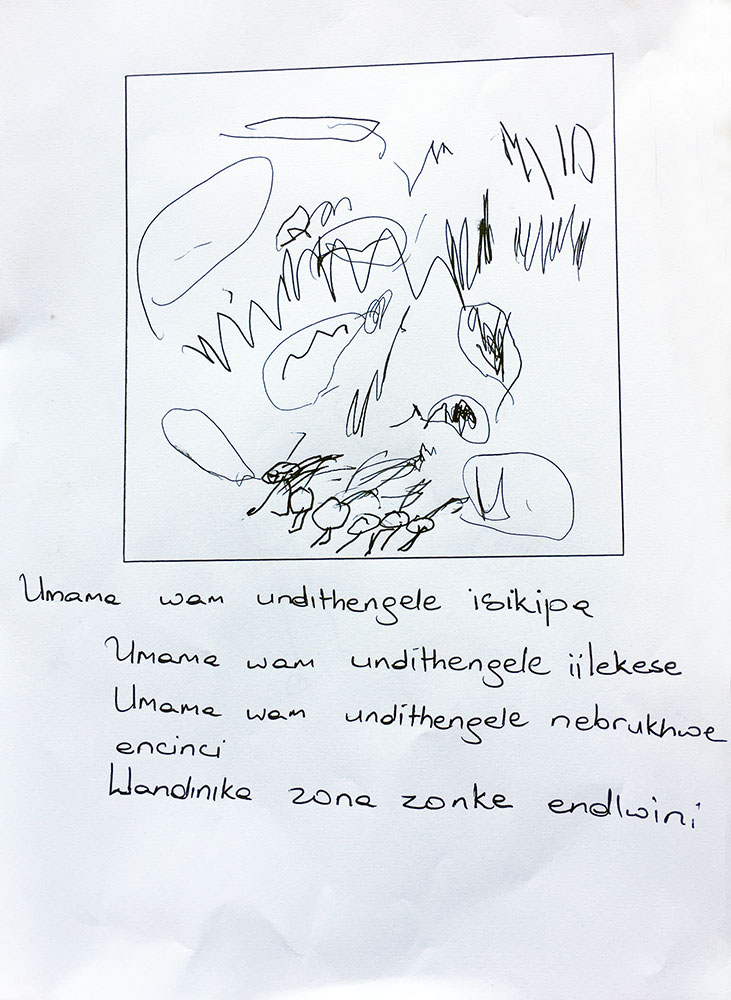 Umama wam undithengele isikipa
Umama wam undithengele iilekese
Umama wam undithengele nebrukhwe
encinci
Wandinika zona zonke endlwini